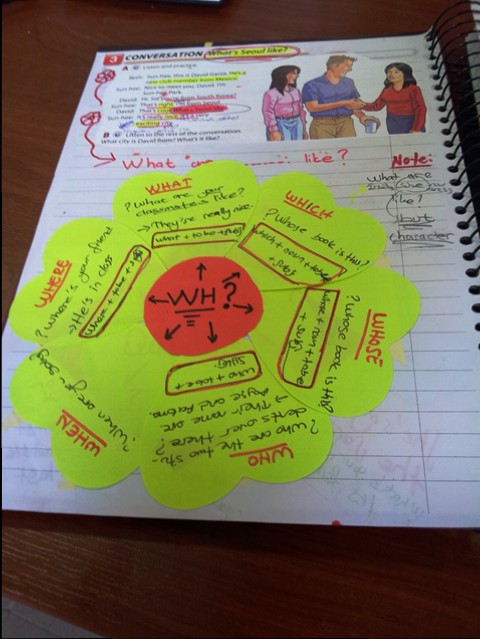 3 CONVERSATION What's Seoul like?
A Listen and practice.
Beth: Sun-hee, this is David Garza. He's a
new club member from Mexico.
Sun-hee: Nice to meet you, David. I'm
Sun-hee Park.
David: Hi. So you're from South Korea?
Sun-hee: That's right. I'm from Seoul.
David: That's cool. What's Seoul like?
Sun-hee: It's really nice. It's a very
exciting city.
B Listen to the rest of the conversation.
What city is David from? What's it like?
What like?
Note:
what are
like!
but
character
WHAT
? What are your
classmates like?
→ They're really nice.
what + tobe + subj
WHICH
? Whose book is this?
which + noun + tobe
+ subj
WHOSE
? Whose book is this?
whose + noun + tobe
+ subj
WHO
? Who are the two stu-
dents over there?
→ Their name are
Ayşe and Fatma.
who + tobe +
subj
WHEN
? When are you going
WHERE
? Where is your friend
→ He is in class
where + tobe + subj
WH?